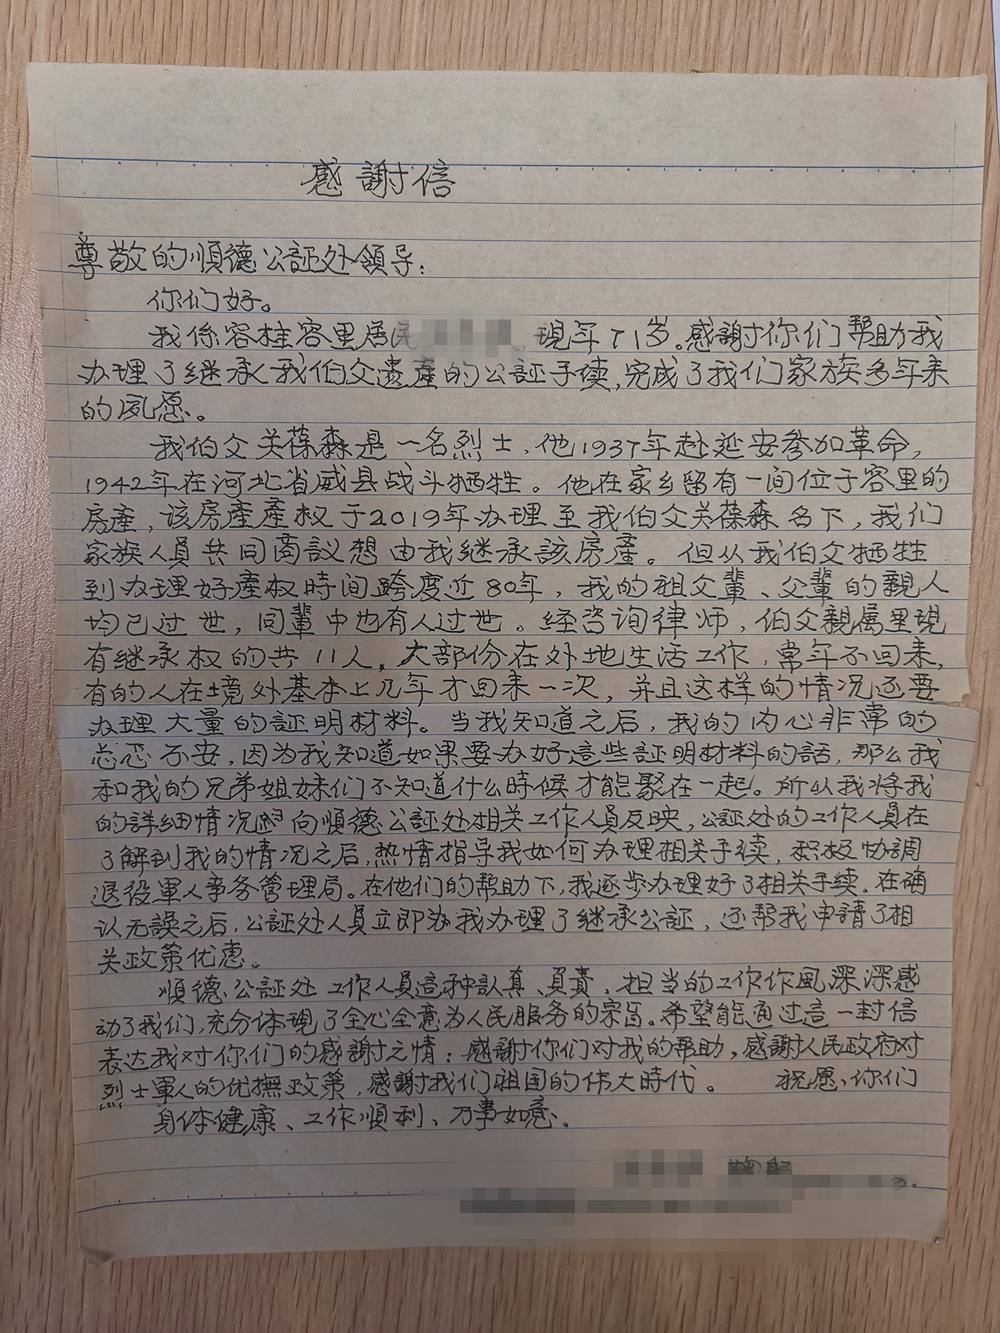 感謝信
尊敬的順德公証处領导:
你们好。
我係容桂容里居民 現年71岁。感謝你们帮助我
办理了继承我伯父遺產的公証手续,完成了我们家族多年来
的夙愿。
我伯父关葆森是一名烈士,他1937年赴延安参加革命,
1942年在河北省威县战斗牺牲。他在家乡留有一间位于容里的
房產,該房產產权于2019年办理至我伯父关葆森名下,我们
家族人員共同商議想由我继承該房產。但从我伯父牺牲
到办理好產权時间跨度近80年,我的祖父輩、父輩的親人
均已过世,同輩中也有人过世。经咨询律师,伯父親属里現
有继承权的共11人,大部份在外地生活工作,常年不回来,
有的人在境外基本上几年才回来一次,并且这样的情况还要
办理大量的証明材料。当我知道之后,我的内心非常的
忐忑不安,因为我知道如果要办好這些証明材料的話,那么我
和我的兄弟姐妹们不知道什么時候才能聚在一起。所以我将我
的詳细情况 向順德公証处相关工作人員反映,公証处的工作人員在
了解到我的情况之后,热情指导我如何办理相关手续,积极协調
退役軍人事务管理局。在他们的帮助下,我逐步办理好了相关手续.在确
认无誤之后,公証处人員立即为我办理了继承公証,还帮我申請了相
关政策优惠。
順德公証处工作人員這种認真、負責、担当的工作作風深深感
动了我们,充分体現了全心全意为人民服务的宗旨。希望能通过這一封信
表达我对你们的感謝之情:感謝你们对我的帮助,感謝人民政府对
烈士軍人的优撫政策,感謝我们祖国的伟大時代。 祝愿你们
身体健康、工作順利、万事如意。